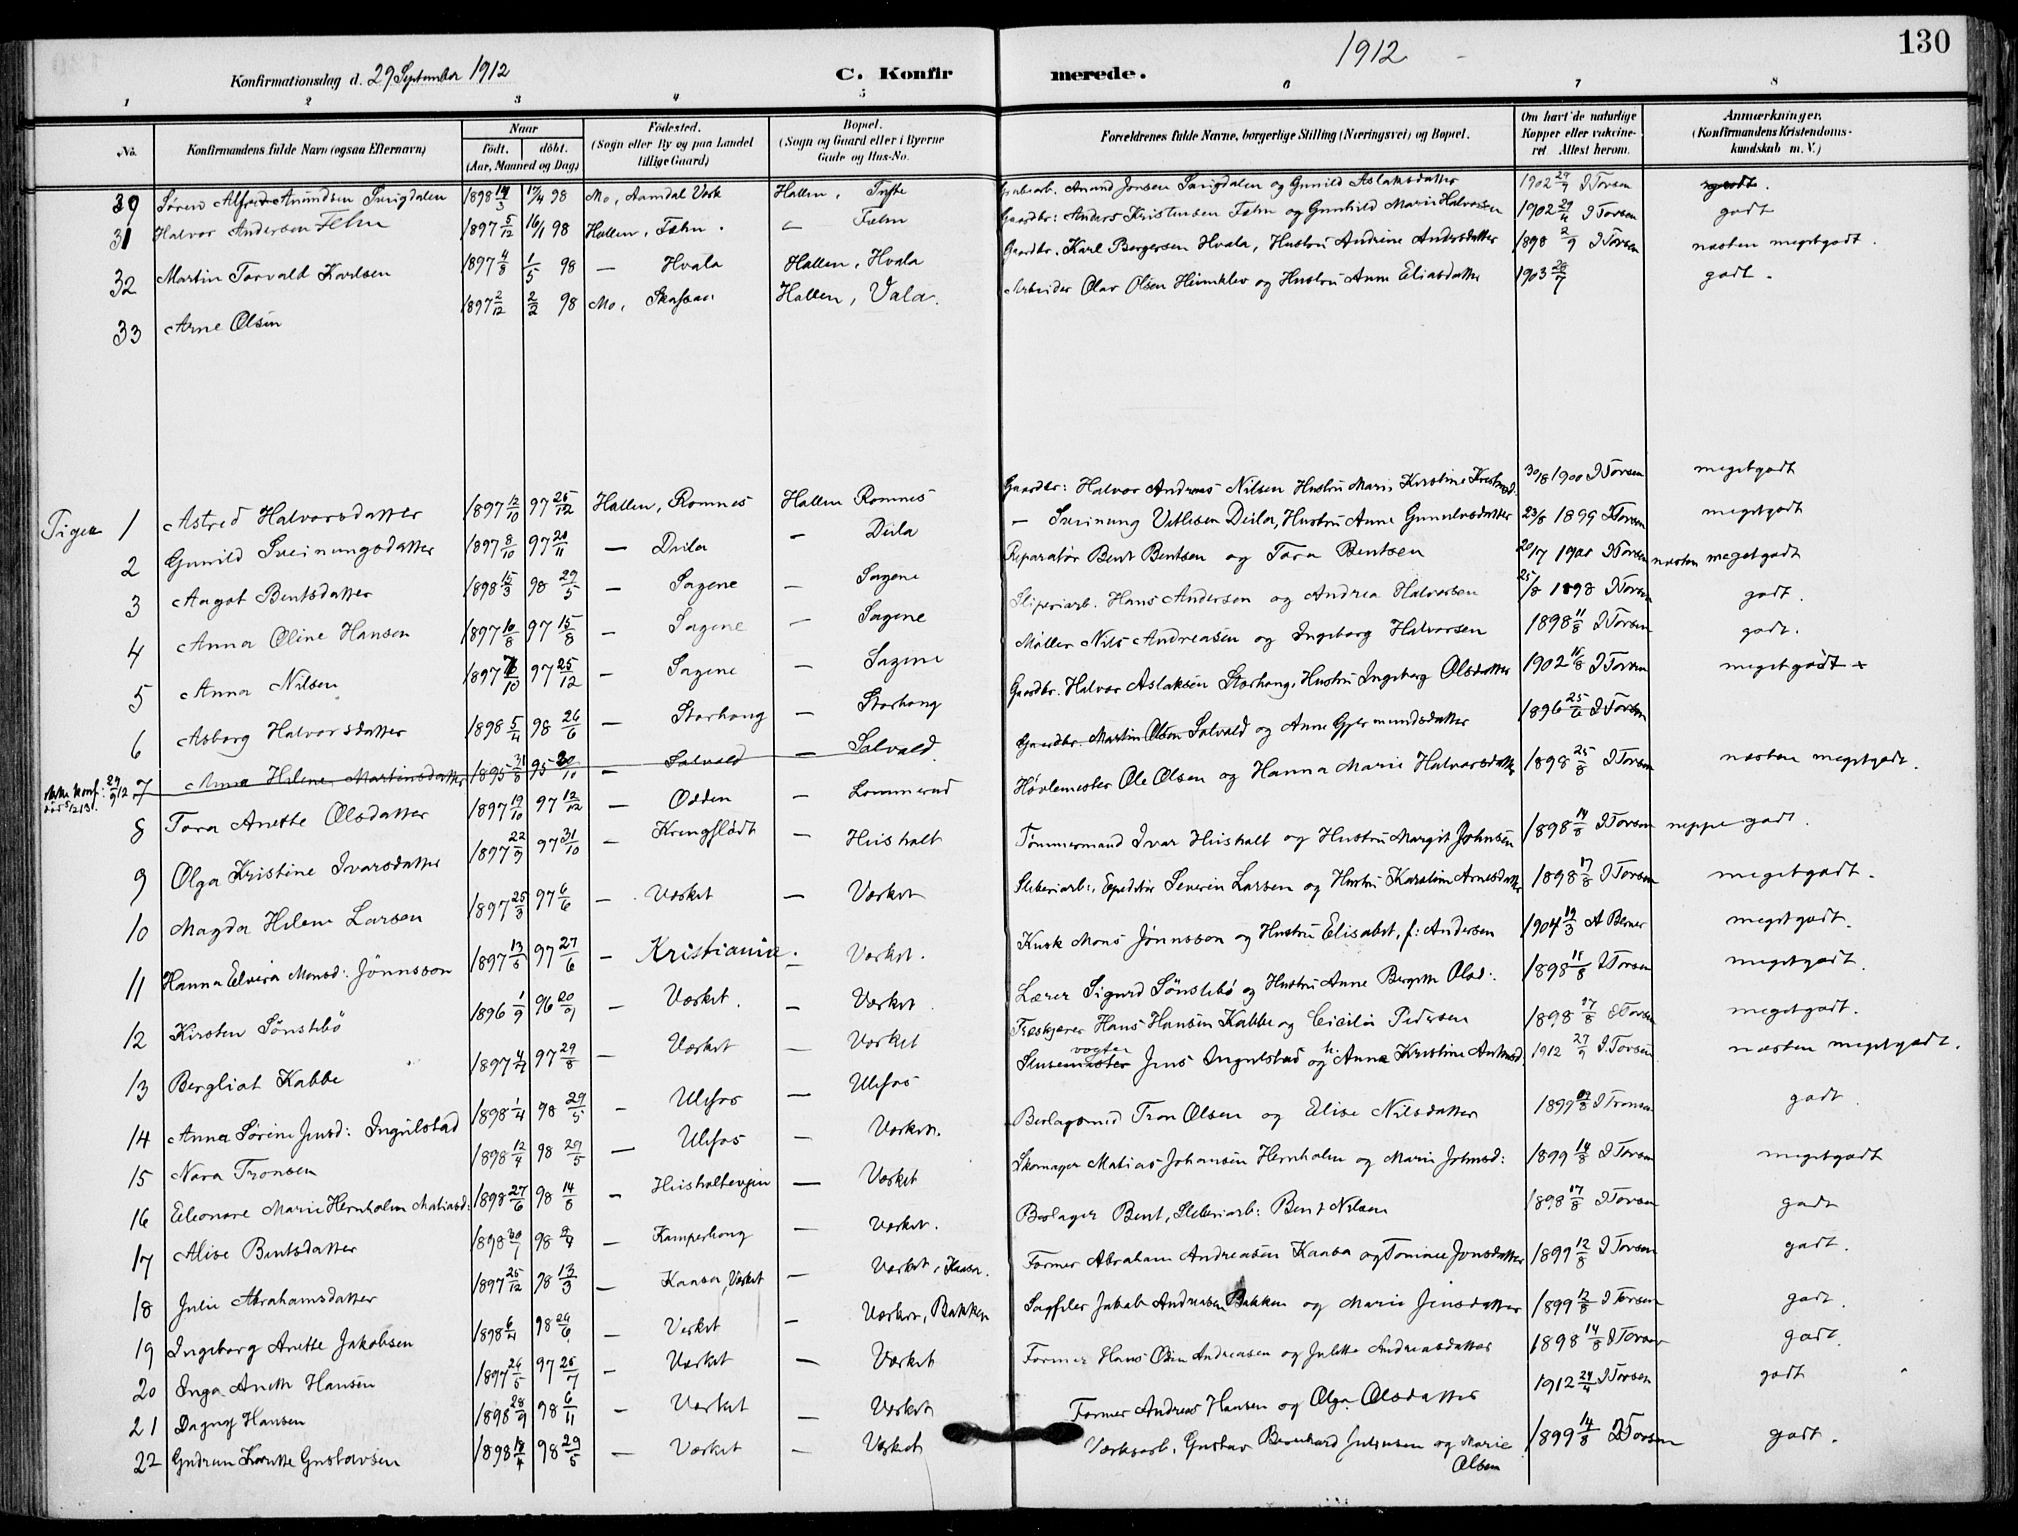 130
Konfirmationsdag d. 29 September 1912
C. Konfirmerede.
1912
1 2 3 4 5 6 7 8
No.
Konfirmandens fulde Navn (ogsaa Efternavn)
Naar
født. døbt.
(Aar, Maaned og Dag)
Fødested.
(Sogn eller By og paa Landet
tillige Gaard)
Bopæl.
(Sogn og Gaard eller i Byerne
Gade og Hus-No.
Forældrenes fulde Navne, borgerlige Stilling (Næringsvei) og Bopæl.
Om havt de naturlige
Kopper eller vakcine-
ret. Attest herom.
Anmærkninger.
(Konfirmandens Kristendoms-
kundskab m. V.)
30 Søren Alfred Amundsen 1898 17/4 98 Mo, Aamdal Værk Hollen, Tufte 1902 I Torsen godt.
31 Halvor Andersen Fehn 1897 5/12 16/1 98 Hollen, Fæhn. Fæhn Gaardbr: Anders Kristensen Fæhn og Gunhild Marie Halvorsen 1902 29/4 I Torsen godt
32 Martin Torvald Karlsen 1897 4/8 1/5 98 — Hvala Hollen, Hvala Gaardbr. Karl Borgersen Hvala, Hustru Andrine Andersdatter 1898 2/9 I Torsen næsten megetgodt.
33 Arne Olsen 1897 2/12 2/2 98 Mo, Skafsaa Hollen, Vala. Arbeider Olav Olsen Heimklev og Hustru Anne Eliasdatter 1903 godt.
Piger 1 Astred Halvorsdatter 1897 12/10 97 26/12 Hollen, Romnes Hollen Romnes Gaardbr: Halvor Andreas Nilsen Hustru Marie Kirstine 30/8 1900 I Torsen megetgodt
2 Gunild Sveinungsdatter 1897 8/10 97 21/11 — Deila — Deila — Sveinung Vetlesen Deila, Hustru Anne Gunulvsdatter 23/8 1899 I Torsen megetgodt
3 Aagot Bentsdatter 1898 15/3 98 29/5 — Sagene — Sagene Reparatør Bent Bentsen og Tora Bentsen 20/7 1901 I Torsen næsten megetgodt
4 Anna Oline Hansen 1897 10/8 97 15/8 — Sagene — Sagene Sliperiarb. Hans Andersen og Andrea Halvorsen 25/8 1898 I Torsen godt.
5 Anna Nilsen 1897 /10 97 25/12 — Sagene — Sagene Møller Nils Andreasen og Ingeborg Halvorsen 1898 11/8 I Torsen godt.
6 Asborg Halvorsdatter 1898 5/4 98 26/6 — Storhaug — Storhaug Gaardbr. Halvor Aslaksen Storhaug, Hustru Ingeborg Olsdatter 1902 11/8 I Torsen megetgodt +
ikke konf: 29/9 12 7 Anna Helene Martinsdatter 1895 31/8 95 20/10 — Solvold — Solvold. Gaardbr. Martin Olsen Solvold og Anne Gjermundsdatter 1896 25/6 I Torsen
8 Tora Anette Olsdatter 1897 19/10 97 12/12 — Odden — Lommerud Høvlemester Ole Olsen og Hanna Marie Halvorsdatter 1898 25/8 I Torsen næsten megetgodt.
9 Olga Kristine Ivarsdatter 1897 22/9 97 31/10 — Kringflødt — Heisholt Tømmermand Ivar Heisholt og Hustru Margit Johnsen 1898 14/8 I Torsen neppe godt.
10 Magda Helene Larsen 1897 25/3 97 6/6 — Værket — Værket Sliberiarb:, Expeditør Severin Larsen og Hustru Karoline Arnesdatter 1898 17/8 I Torsen megetgodt.
11 Hanna Elvira Monsd: Jønnsson 1897 13/5 97 27/6 — Kristiania. — Værket. Kusk Mons Jønnsson og Hustru Elisabet, f: Andersen 1904 19/3 A Berner megetgodt.
12 Kirsten Sønstebø 1896 1/9 96 20/9 — Værket. — Værket. Lærer Sigurd Sønstebø og Hustru Anne Bergitte Olsd:. 1898 11/8 I Torsen megetgodt.
13 Bergliot Kabbe 1897 4/4 97 29/8 — Værket — Værket Træskjærer Hans Hansen Kabbe og Cicilie Pedersen 1898 17/8 I Torsen megetgodt.
14 Anna Sørine Jensd: Ingulstad 1898 1/4 98 29/5 — Ulefos — Ulefos Slusemester vogter Jens Ingulstad og h: Anna Kristine 1912 27/9 I Torsen næsten megetgodt.
15 Nora Tronsen 1898 12/4 98 29/5 — Ulefos — Værket. Beslagsmed Tron Olsen og Elise Nilsdatter 1899 I Torsen godt
16 Eleonore Marie Hernholm Matiasd: 1898 27/6 98 14/8 — — Værket Skomager Matias Johansen Hernholm og Marie Johnsd: 1899 14/8 I Torsen megetgodt
17 Alise Bentsdatter 1898 30/7 98 — Kamperhaug — Værket. Beslager Bent, Sliberiarb: Bent Nilsen 1898 17/8 I Torsen godt
18 Julie Abrahamsdatter 1897 25/12 98 13/3 — Kaasa, Værket — Værket, Kaasa. Former Abraham Andreasen Kaasa og Tomine Jonsdatter 1899 12/8 I Torsen godt.
19 Ingeborg Anette Jakobsen 1898 6/4 98 26/6 — Værket — Værket, Bakken Sagfiler Jakob Andreasen Bakken og Marie Jensdatter 1899 12/8 I Torsen godt.
20 Inga Aneth Hansen 1897 26/5 97 25/7 — Værket — Værket Former Hans Odin Andreasen og Julitte Andreasdatter 1898 14/8 I Torsen godt.
21 Dagny Hansen 1898 28/9 98 6/11 — Værket — Værket Former Andreas Hansen og Olga Olsdatter 1912 24/4 I Torsen godt
22 Gudrun Gustavsen 1898 98 29/5 — Værket — Værket Værksarb. Gustav Bernhard og Marie Olsen 1899 14/8 I Torsen godt.